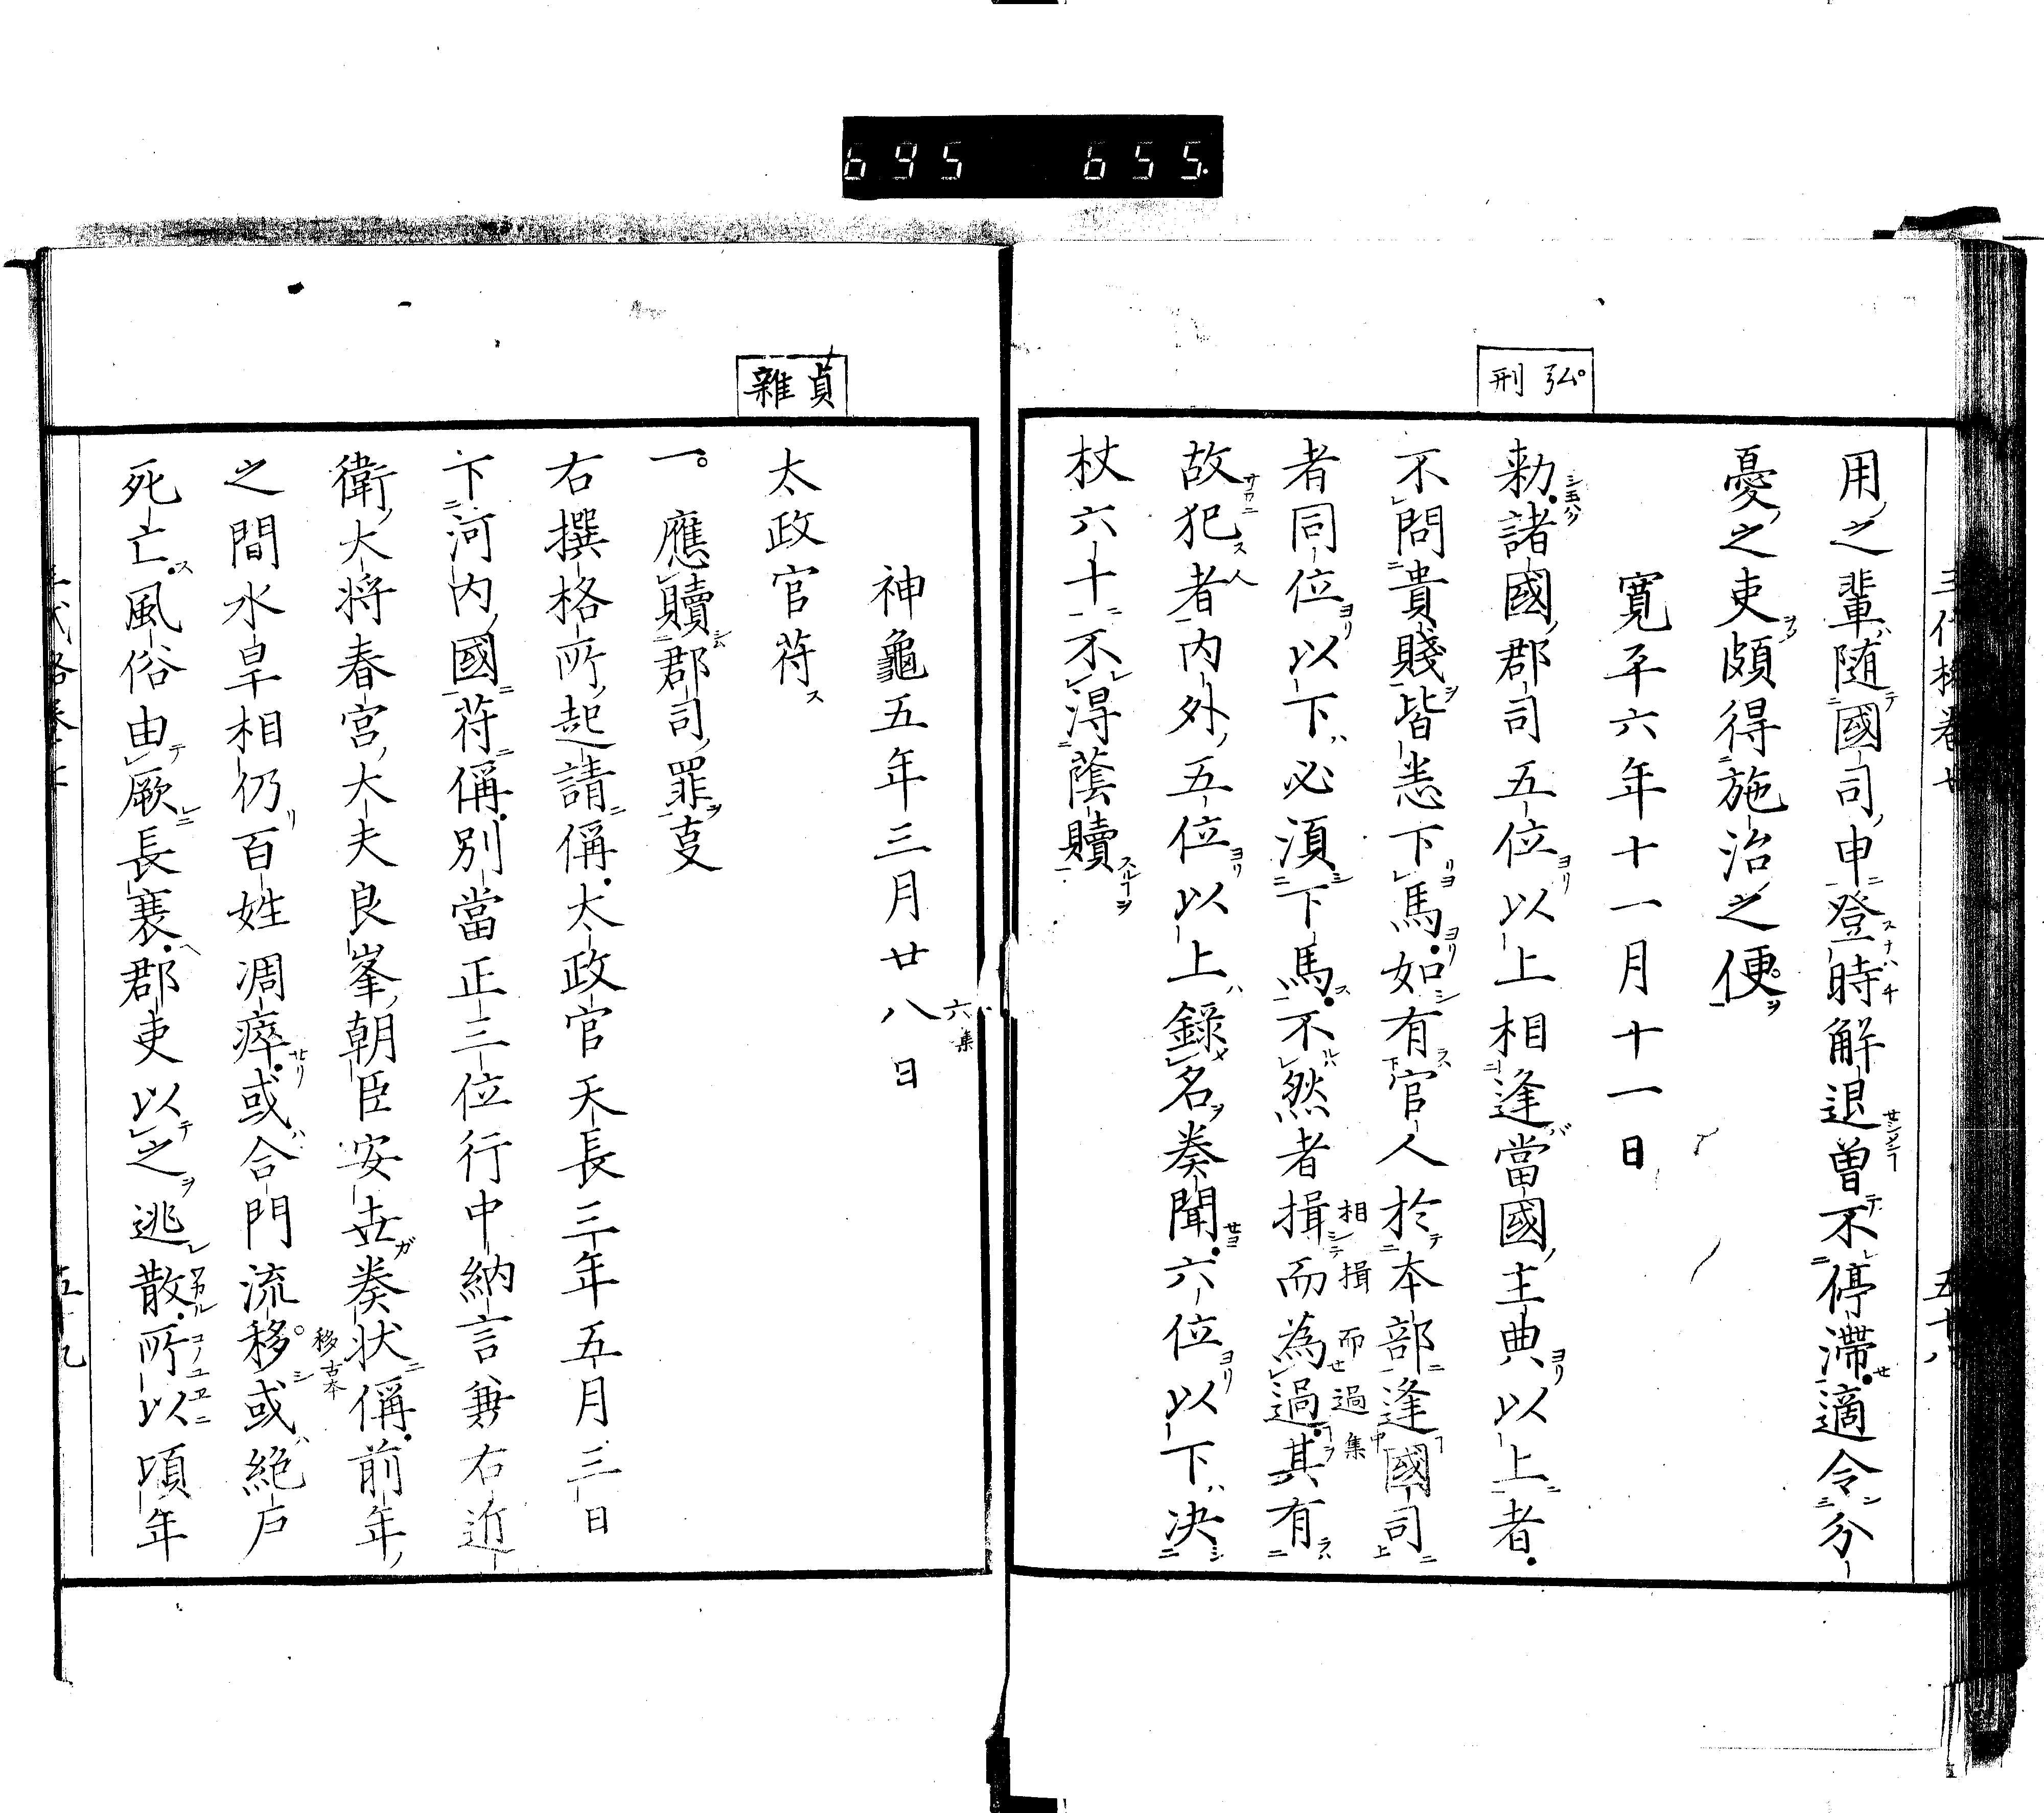 695 655.
三代格卷廿
五十八
用之輩随國司申登時解退曽不停滯適令分
憂之吏頗得施治之便
寛平六年十一月十一日
弘刑
勅諸國郡司五位以上相逢當國主典以上者
不問貴賤皆悉下馬如有官人於本部逢國司
者同位以下必湏下馬不然者揖而為過其有
相揖而過集
故犯者内外五位以上録名奏聞六位以下决
杖六十不淂蔭贖
神龜五年三月廿八日
六集
貞雜
太政官苻
一應贖郡司罪㕝
右撰格所起請偁太政官天長三年五月三日
下河内國苻偁別當正三位行中納言兼右近
衛大将春宮大夫良峯朝臣安世奏状偁前年
之間水旱相仍百姓凋瘁或合門流移或絶戸
移古本
死亡風俗由厥長襄郡吏以之逃散所以頃年
五十九